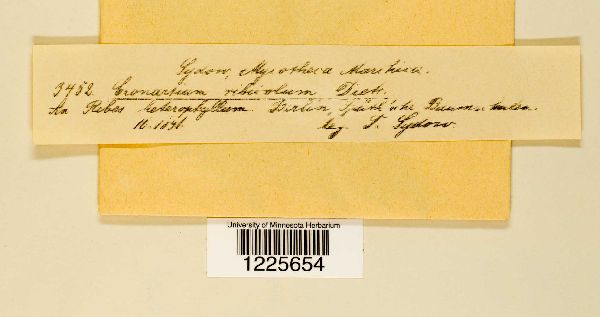 Sydow, Mycotheca Marchica.
3452. Cronartium ribicolum Dietr.
An Ribes heterophyllum. Berlin, Späth'sche Baumschulen.
10. 1891. leg. P. Sydow.
University of Minnesota Herbarium
1225654